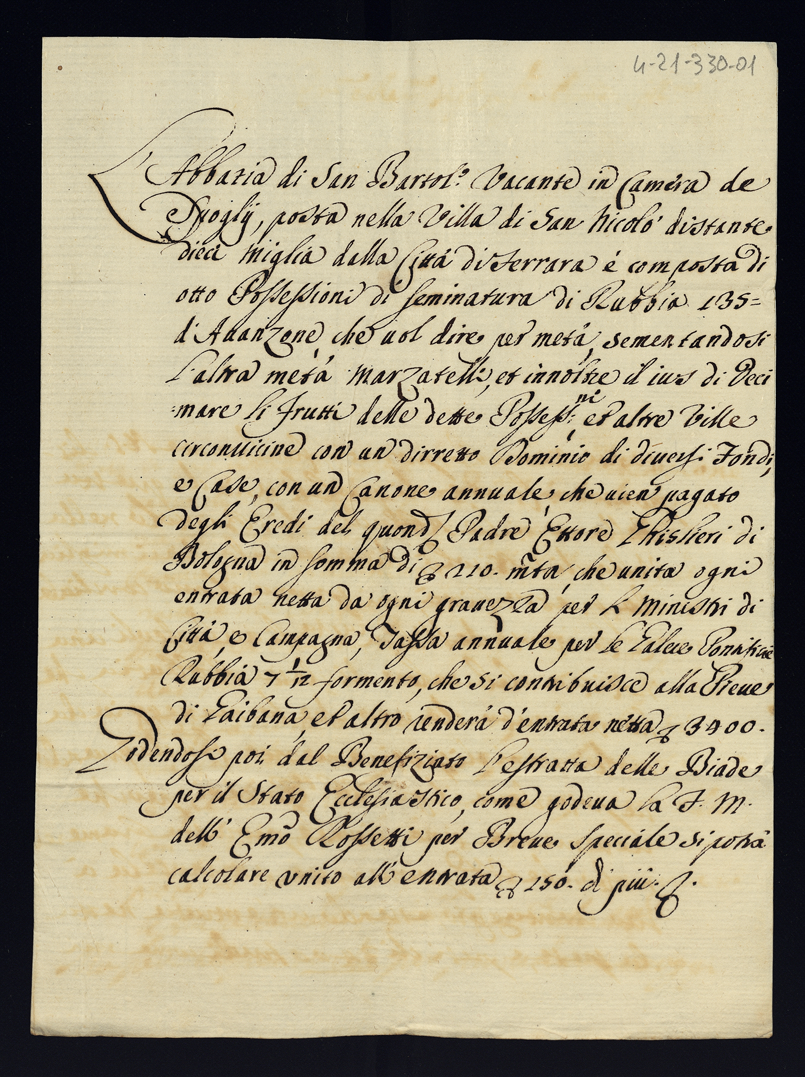 4-21-330-01
L'Abbatia di San Bartol.o Vacante in Camera de
Spogly, posta nella Villa di San Nicolò distante
dieci miglia dalla Città di Ferrara è composta di
otto Possessioni di seminatura di Rubbia 135=
d'Auanzone che uol dire per metà, sementandosi
l'altra metà Marzatelli, et innoltre il ius di Deci
mare li frutti delle dette Possess.ni et altre Ville
circonuicine con un dirretto Dominio di diuersi Fondi,
e Case, con un Canone annuale che uien pagato
degli Eredi del quond. Padre Ettore Ghislieri di
Bologna in somma di 210. mta, che unita ogni
entrata netta da ogni grauezza per li Ministri di
Città e Campagna, Tassa annuale per le Galere Pontificie
Rubbia 7 1/12 formento, che si contribuisce alla Pieue
di Gaibana, et altro renderà d'entrata netta 3400.
Godendosi poi dal Benefiziato l'estratta delle Biade
per il Stato Ecclesiastico, come godeua la F. M.
dell' Emo Rossetti per Breue speciale si potrà
calcolare unito all'entrata 150. di più.